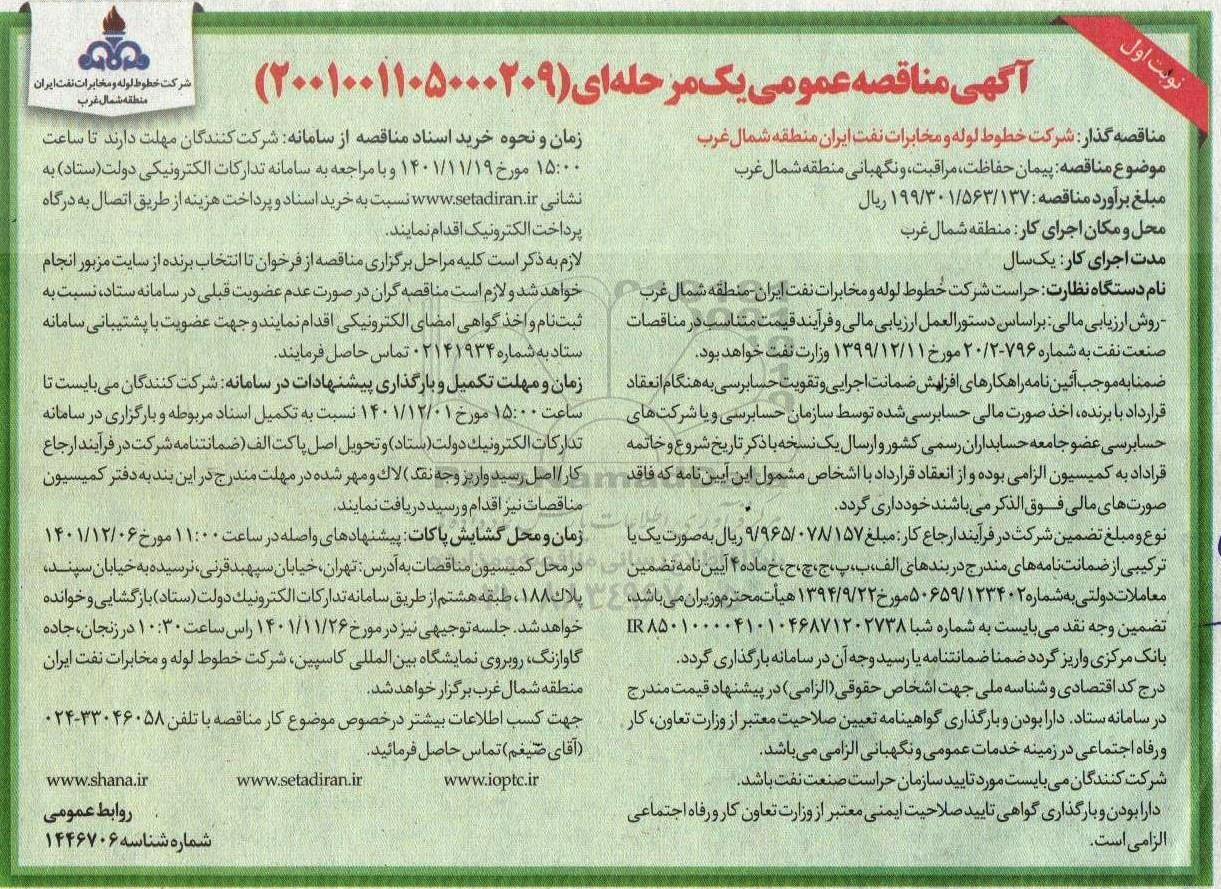 نوبت اول
شرکت خطوط لوله و مخابرات نفت ایران
منطقه شمال غرب
آگهی مناقصه عمومی یک مرحله‌ای (۲۰۰۱۰۰۱۱۰۵۰۰۰۲۰۹)
مناقصه گذار: شرکت خطوط لوله و مخابرات نفت ایران منطقه شمال غرب
موضوع مناقصه: پیمان حفاظت، مراقبت، و نگهبانی منطقه شمال غرب
مبلغ برآورد مناقصه: ۱۹۹/۳۰۱/۵۶۳/۱۳۷ ریال
محل و مکان اجرای کار: منطقه شمال غرب
مدت اجرای کار: یک سال
نام دستگاه نظارت: حراست شرکت خطوط لوله و مخابرات نفت ایران- منطقه شمال غرب
-روش ارزیابی مالی: براساس دستورالعمل ارزیابی مالی و فرآیند قیمت متناسب در مناقصات
صنعت نفت به شماره ۷۹۶-۲۰/۲ مورخ ۱۳۹۹/۱۲/۱۱ وزارت نفت خواهد بود.
ضمنا به موجب آئین نامه راهکارهای افزایش ضمانت اجرایی و تقویت حسابرسی به هنگام انعقاد
قرارداد با برنده، اخذ صورت مالی حسابرسی شده توسط سازمان حسابرسی و یا شرکت های
حسابرسی عضو جامعه حسابداران رسمی کشور و ارسال یک نسخه با ذکر تاریخ شروع و خاتمه
قراداد به کمیسیون الزامی بوده و از انعقاد قرارداد با اشخاص مشمول این آیین نامه که فاقد
صورت های مالی فوق الذکر می باشند خودداری گردد.
نوع و مبلغ تضمین شرکت در فرآیند ارجاع کار: مبلغ ۹/۹۶۵/۰۷۸/۱۵۷ ریال به صورت یک یا
ترکیبی از ضمانت نامه های مندرج در بندهای الف، ب، پ، ج، چ، ح، خ ماده ۴ آیین نامه تضمین
معاملات دولتی به شماره ۵۰۶۵۹/۱۲۳۴۰۲ مورخ ۱۳۹۴/۹/۲۲ هیأت محترم وزیران می باشد.
تضمین وجه نقد می بایست به شماره شبا IR ۸۵۰۱۰۰۰۰۴۱۰۱۰۴۶۸۷۱۲۰۲۷۳۸
بانک مرکزی واریز گردد ضمنا ضمانتنامه یا رسید وجه آن در سامانه بارگذاری گردد.
درج کد اقتصادی و شناسه ملی جهت اشخاص حقوقی (الزامی) در پیشنهاد قیمت مندرج
در سامانه ستاد. دارا بودن و بارگذاری گواهینامه تعیین صلاحیت معتبر از وزارت تعاون، کار
و رفاه اجتماعی در زمینه خدمات عمومی و نگهبانی الزامی می باشد.
شرکت کنندگان می بایست مورد تایید سازمان حراست صنعت نفت باشد.
دارا بودن و بارگذاری گواهی تایید صلاحیت ایمنی معتبر از وزارت تعاون کار و رفاه اجتماعی
الزامی است.
زمان و نحوه خرید اسناد مناقصه از سامانه: شرکت کنندگان مهلت دارند تا ساعت
۱۵:۰۰ مورخ ۱۴۰۱/۱۱/۱۹ و با مراجعه به سامانه تدارکات الکترونیکی دولت(ستاد) به
نشانی www.setadiran.ir نسبت به خرید اسناد و پرداخت هزینه از طریق اتصال به درگاه
پرداخت الکترونیک اقدام نمایند.
لازم به ذکر است کلیه مراحل برگزاری مناقصه از فرخوان تا انتخاب برنده از سایت مزبور انجام
خواهد شد و لازم است مناقصه گران در صورت عدم عضویت قبلی در سامانه ستاد، نسبت به
ثبت نام و اخذ گواهی امضای الکترونیکی اقدام نمایند و جهت عضویت با پشتیبانی سامانه
ستاد به شماره ۰۲۱۴۱۹۳۴ تماس حاصل فرمایند.
زمان و مهلت تکمیل و بارگذاری پیشنهادات در سامانه: شرکت کنندگان می بایست تا
ساعت ۱۵:۰۰ مورخ ۱۴۰۱/۱۲/۰۱ نسبت به تکمیل اسناد مربوطه و بارگزاری در سامانه
تدارکات الکترونیك دولت(ستاد) و تحویل اصل پاکت الف (ضمانتنامه شرکت در فرآیند ارجاع
کار/اصل رسید واریز وجه نقد) لاك و مهر شده در مهلت مندرج در این بند به دفتر کمیسیون
مناقصات نیز اقدام و رسید دریافت نمایند.
زمان و محل گشایش پاکات: پیشنهادهای واصله در ساعت ۱۱:۰۰ مورخ ۱۴۰۱/۱۲/۰۶
در محل کمیسیون مناقصات به آدرس: تهران، خیابان سپهبد قرنی، نرسیده به خیابان سپند،
پلاك ۱۸۸، طبقه هشتم از طریق سامانه تدارکات الکترونیك دولت(ستاد) بازگشایی و خوانده
خواهد شد. جلسه توجیهی نیز در مورخ ۱۴۰۱/۱۱/۲۶ راس ساعت ۱۰:۳۰ در زنجان، جاده
گاوازنگ، روبروی نمایشگاه بین المللی کاسپین، شرکت خطوط لوله و مخابرات نفت ایران
منطقه شمال غرب برگزار خواهد شد.
جهت کسب اطلاعات بیشتر درخصوص موضوع کار مناقصه با تلفن ۳۳۰۴۶۰۵۸-۰۲۴
(آقای ضیغم) تماس حاصل فرمائید.
www.ioptc.ir www.setadiran.ir www.shana.ir
روابط عمومی
شماره شناسه ۱۴۴۶۷۰۶